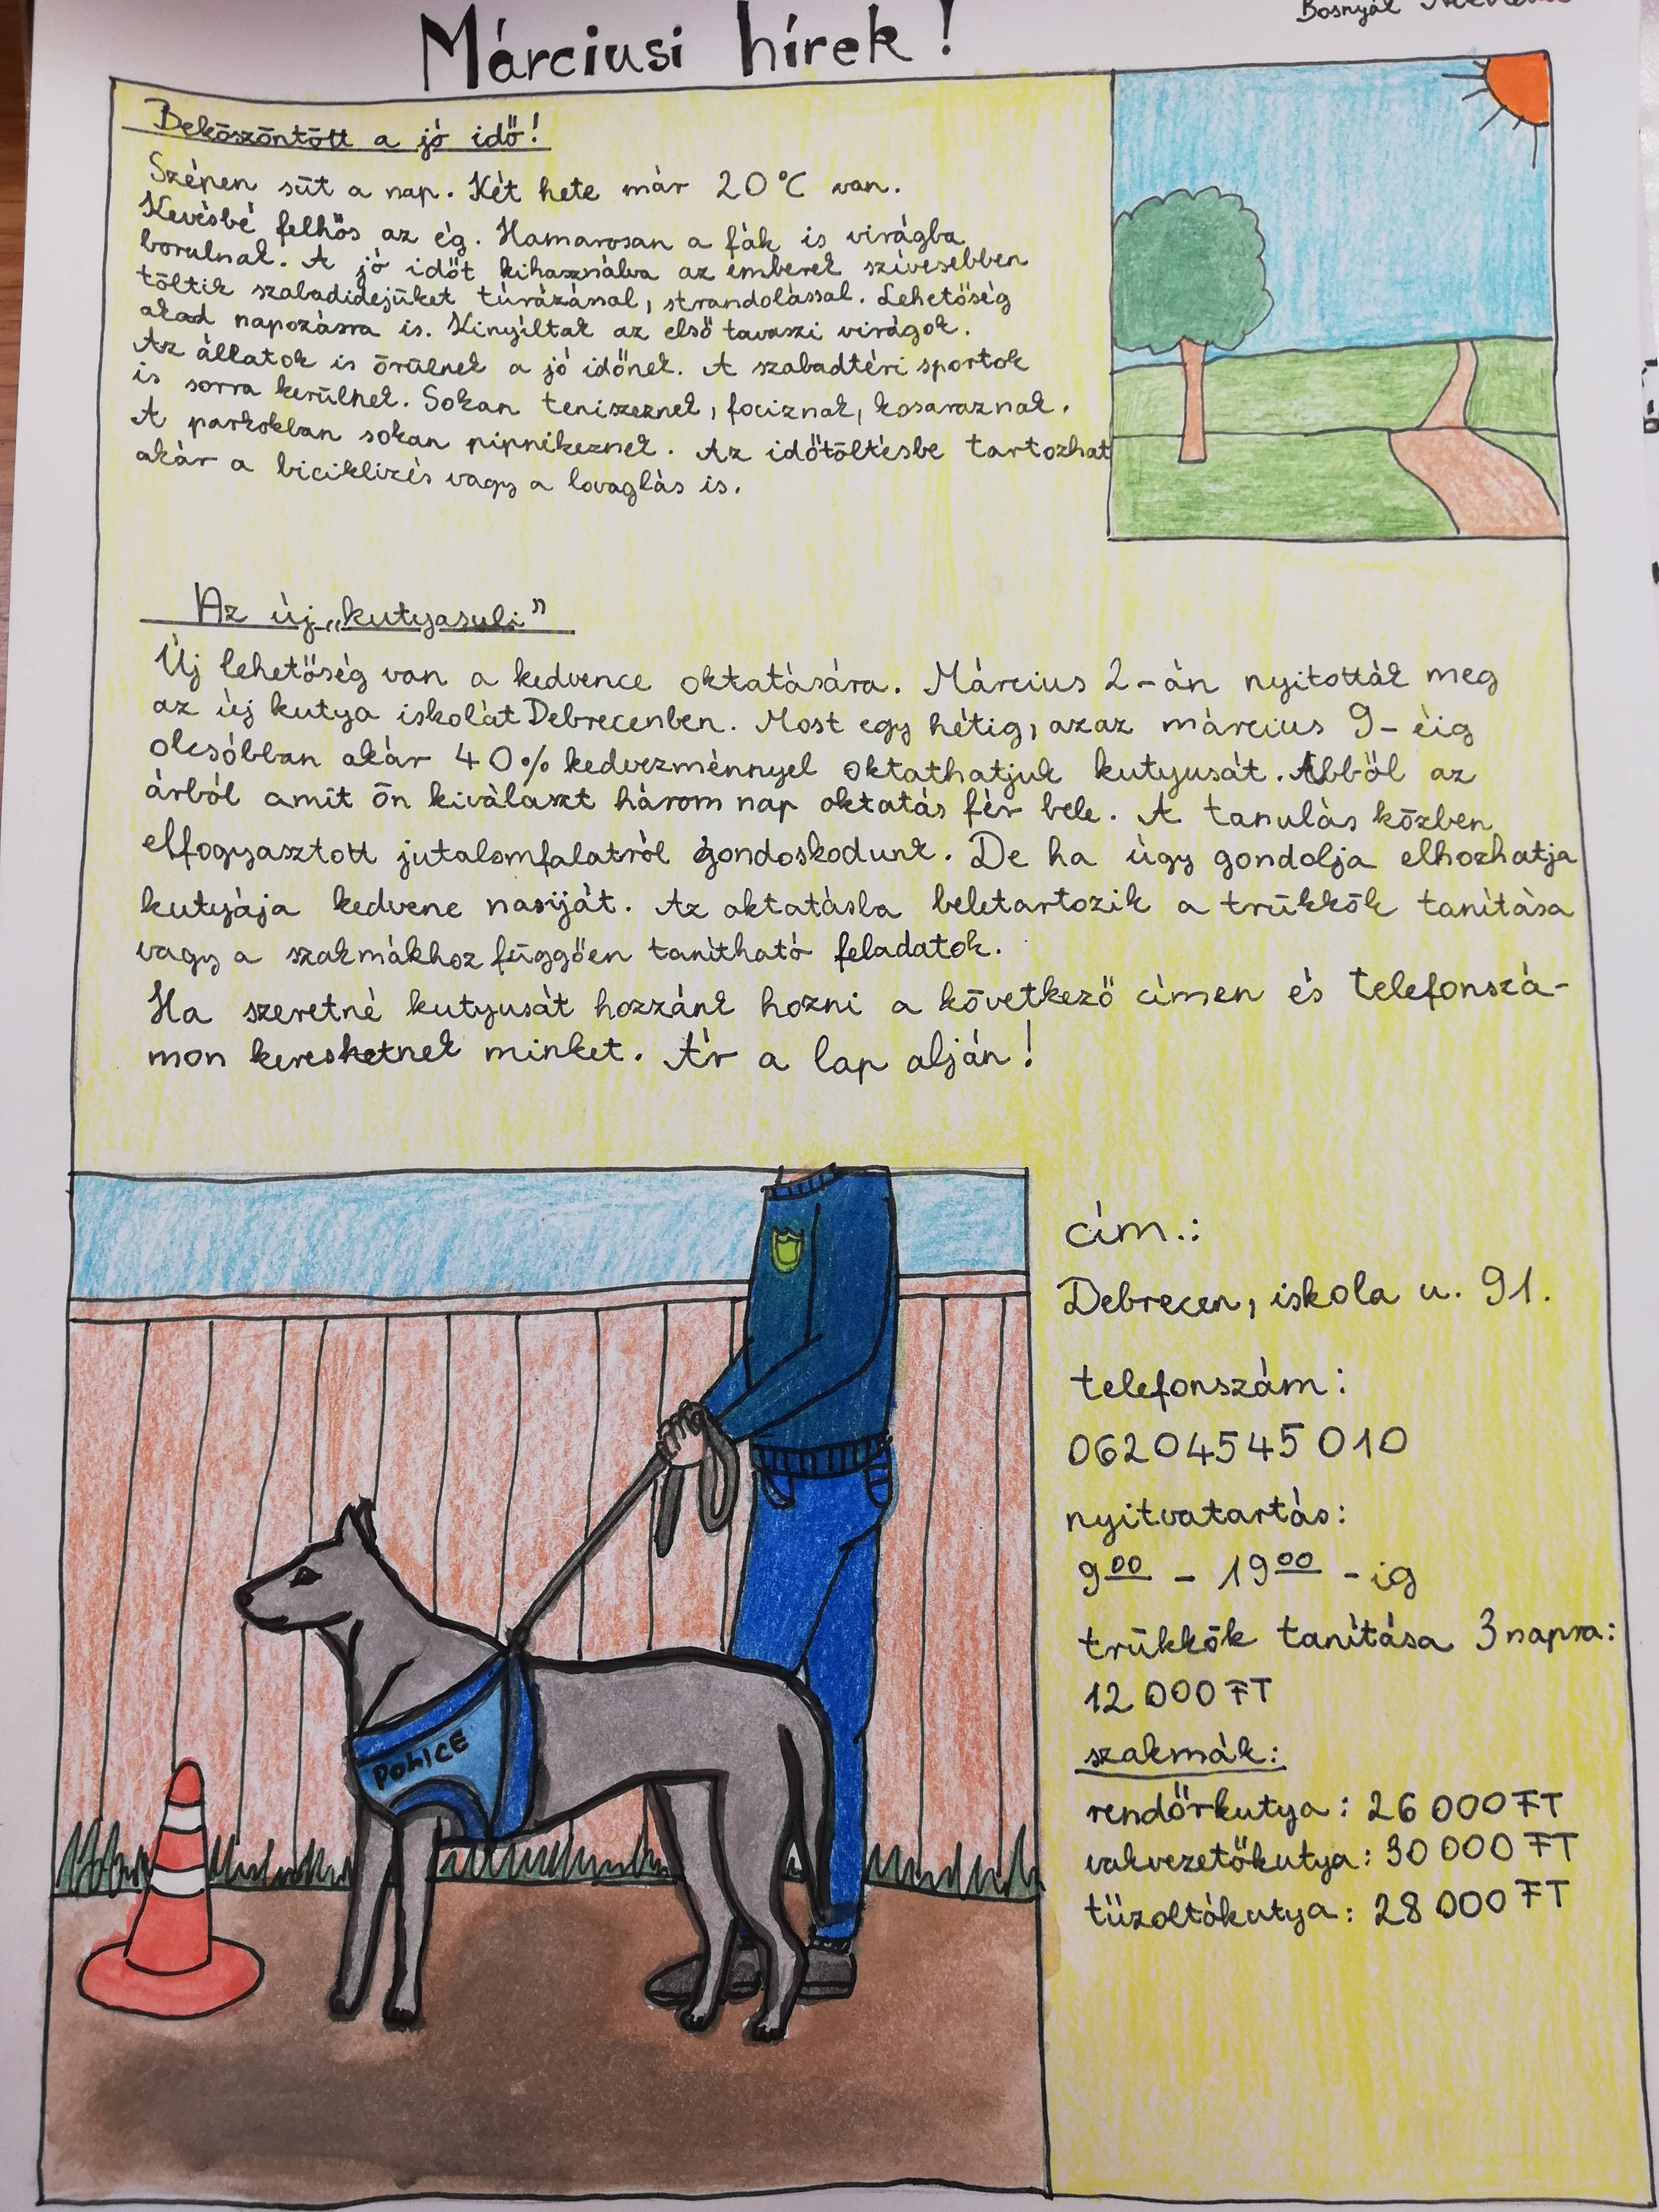 Bosnyák
Márciusi hírek!
Beköszöntött a jó idő!
Szépen süt a nap. Két hete már 20°C van.
Kevésbé felhős az ég. Hamarosan a fák is virágba
borulnak. A jó időt kihasználva az emberek szívesebben
töltik szabadidejüket túrázással, strandolással. Lehetőség
akad napozásra is. Kinyíltak az első tavaszi virágok.
Az állatok is örülnek a jó időnek. A szabadtéri sportok
is sorra kerülnek. Sokan teniszeznek, fociznak, kosaraznak.
A parkokban sokan pipnikeznek. Az időtöltésbe tartozhat
akár a biciklizés vagy a lovaglás is.
Az új „kutyasuli”
Új lehetőség van a kedvence oktatására. Március 2-án nyitották meg
az új kutya iskolát Debrecenben. Most egy hétig, azaz március 9-éig
olcsóbban akár 40% kedvezménnyel oktathatjuk kutyusát. Abból az
árból amit ön kiválaszt három nap oktatás fér bele. A tanulás közben
elfogyasztott jutalomfalatról gondoskodunk. De ha úgy gondolja elhozhatja
kutyája kedvenc nasiját. Az oktatásba beletartozik a trükkök tanítása
vagy a szakmákhoz függően tanítható feladatok.
Ha szeretné kutyusát hozzánk hozni a következő címen és telefonszá-
mon kereshetnek minket. Ár a lap alján!
cím.:
Debrecen, iskola u. 91.
telefonszám:
06204545010
nyitvatartás:
9 00 - 19 00 -ig
trükkök tanítása 3 napra:
12 000 FT
szakmák:
rendőrkutya: 26 000 FT
vakvezetőkutya: 30 000 FT
tűzoltókutya: 28 000 FT
POLICE